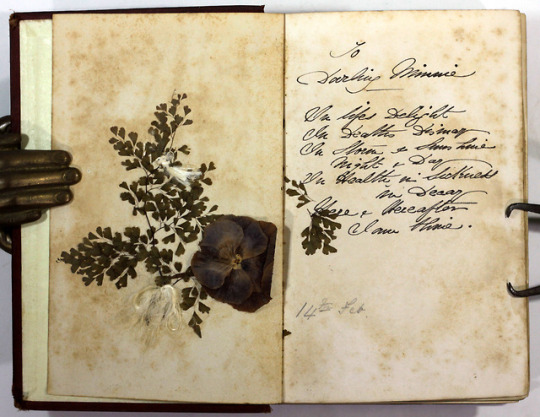 To
Darling Minnie
In lifes Delight
In Deaths Dismay
In Storm & Sunshine
Night & Day
In Health in Sickness
in Decay
Here & Hereafter
I am thine.
14th Feb